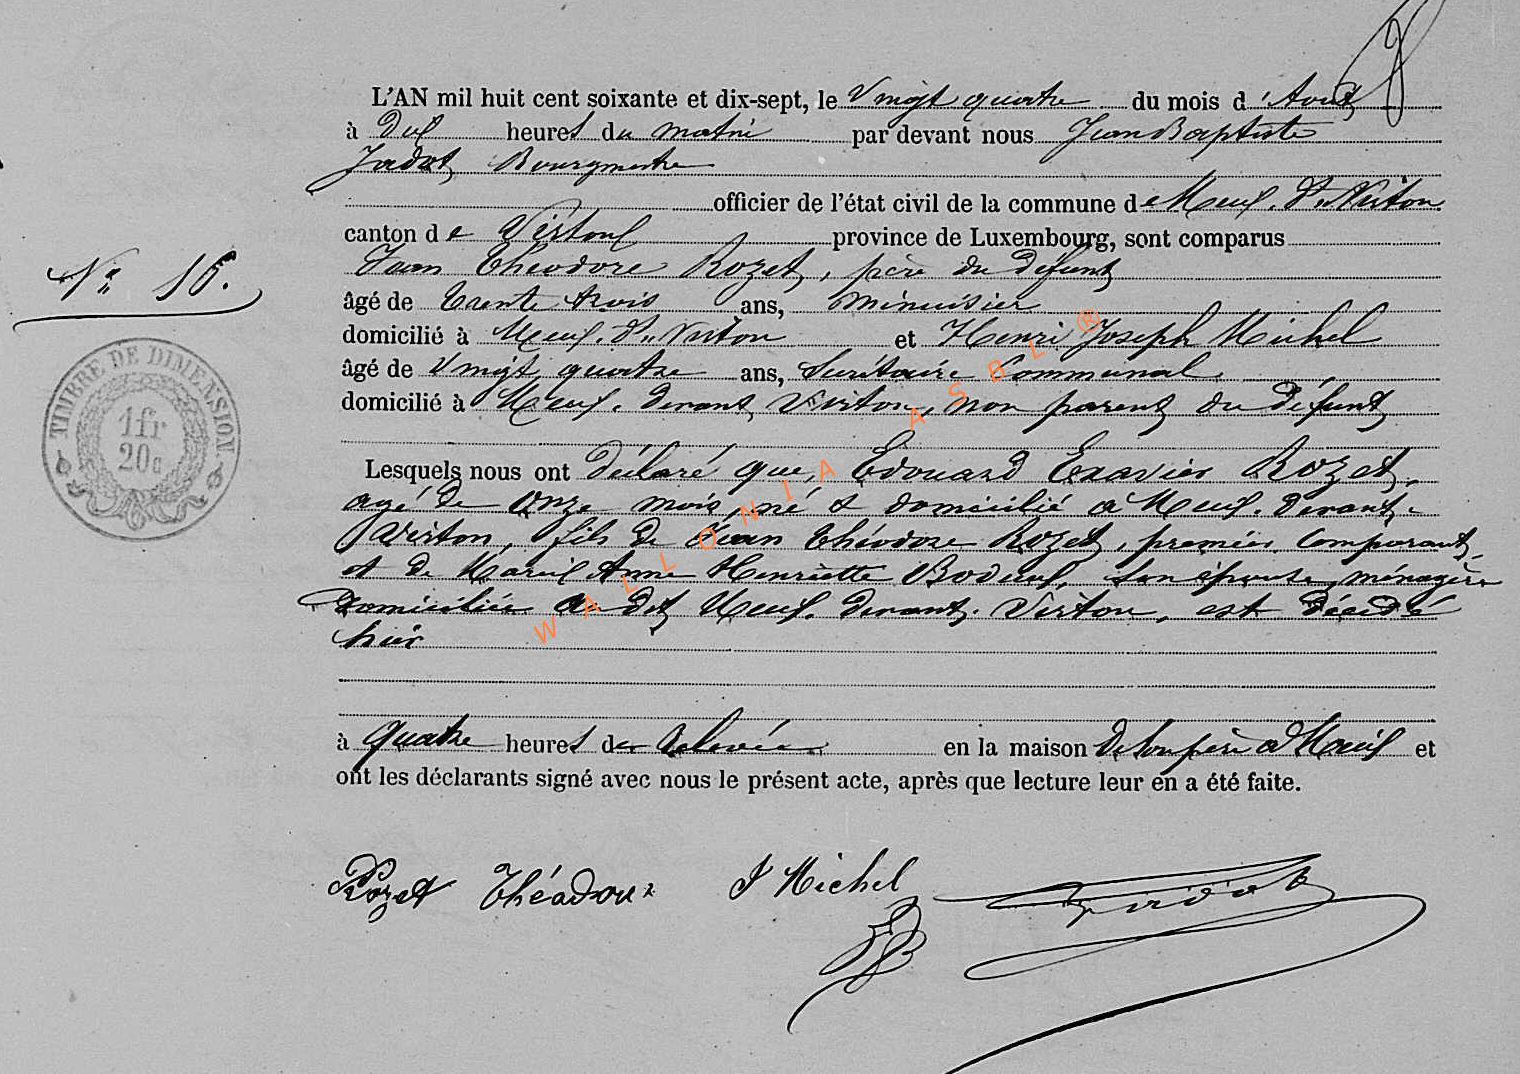 L'AN mil huit cent soixante et dix-sept, le Vingt quatre du mois d'Aout
à dix heures du matin par devant nous Jean Baptiste
Jadot, Bourgmestre
officier de l'état civil de la commune de Meix-dt-Virton
canton de Virton province de Luxembourg, sont comparus
Jean Théodore Rozet, père du défunt
âgé de trente trois ans, menuisier
domicilié à Meix-dt-Virton et Henri Joseph Michel
âgé de Vingt quatre ans, Secrétaire Communal
domicilié à Meix-devant Virton, non parent du défunt
Lesquels nous ont déclaré que, Edouard Exavier Rozet,
agé de onze mois, né & domicilié à Meix-devant-
Virton, fils de Jean Théodore Rozet, premier Comparant,
et de Anne Henriette son épouse, ménagère
domiciliée au dit Meix-devant-Virton, est décédé
hier
à quatre heures de relevée en la maison de son père à Meix et
ont les déclarants signé avec nous le présent acte, après que lecture leur en a été faite.
No 16.
TIMBRE DE DIMENSION
1fr
20c
Rozet Théodore J Michel Jadot
WALLONIA ASBL ®